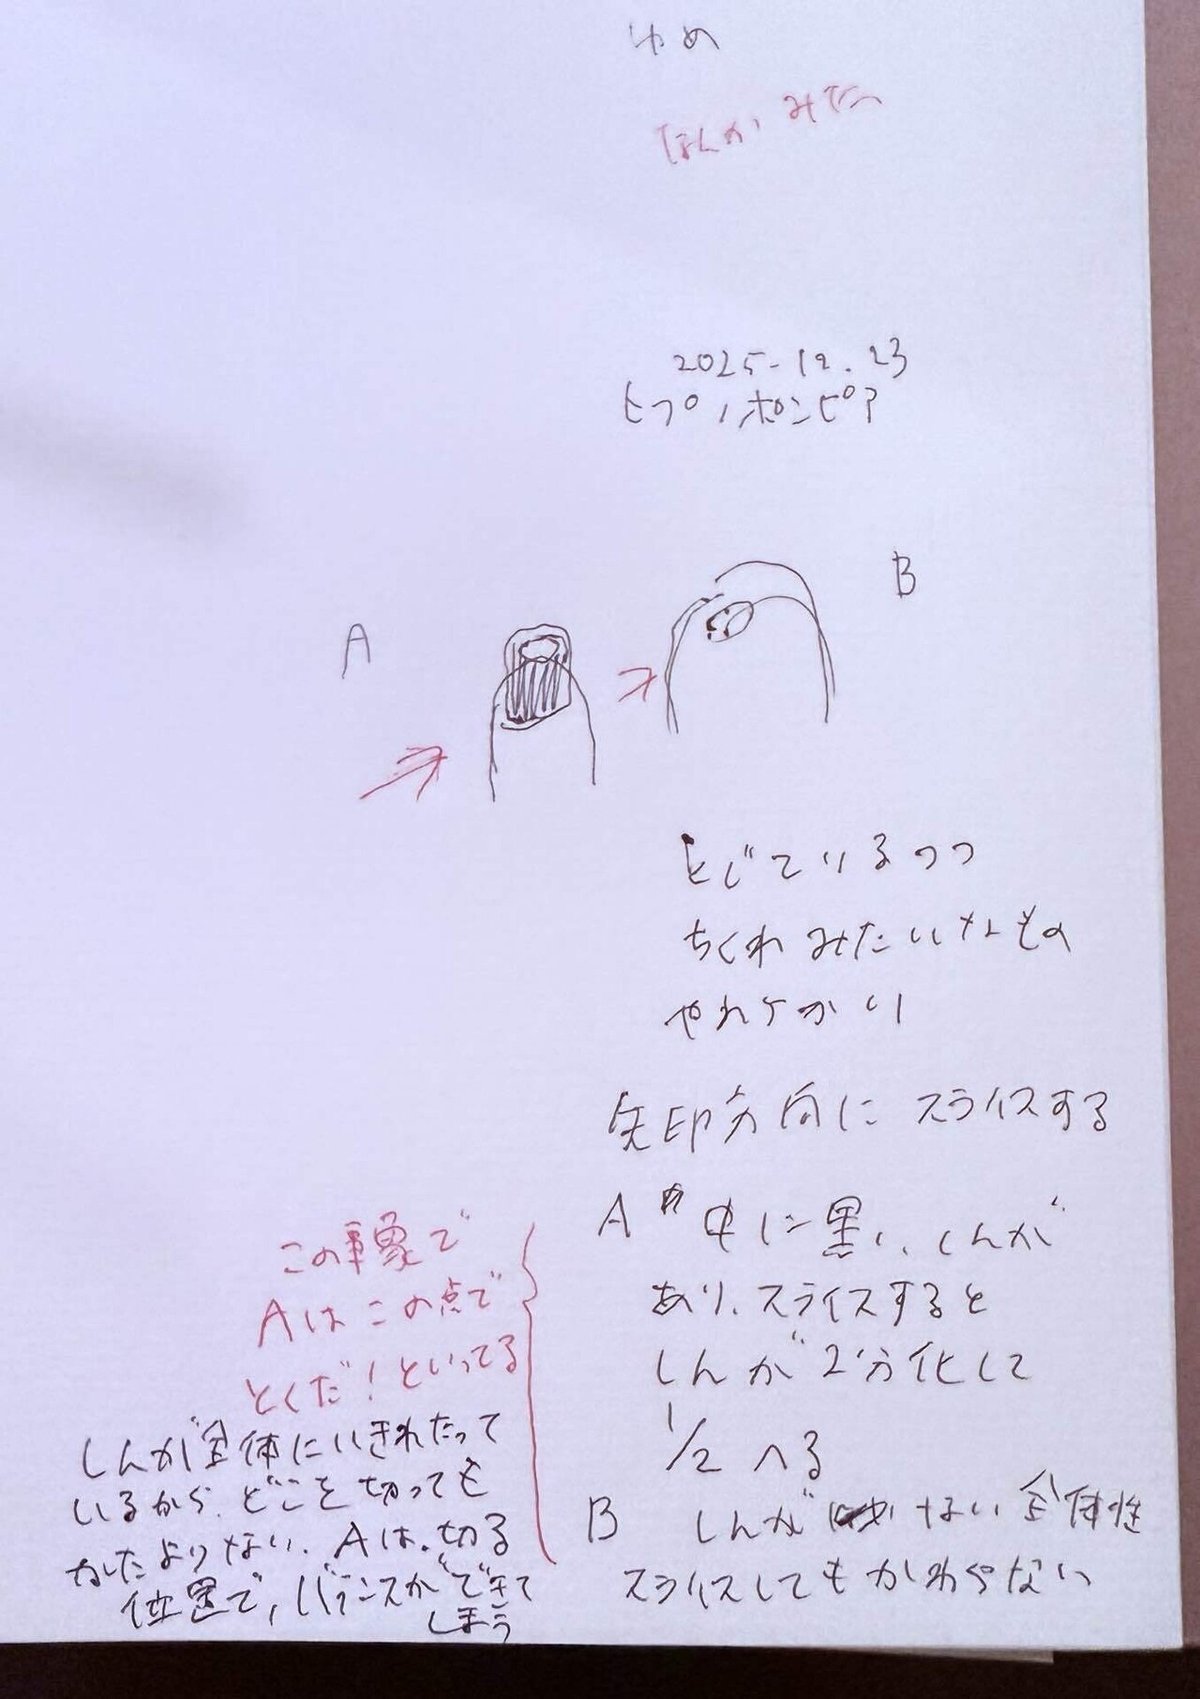 ゆめ
ほんかみた
2025-12.23
ヒプノポンピア
A
B
とじているつつ
ちくわみたいなもの
やわらかい
矢印方向にスライスする
A 中に黒いしんが
あり、スライスすると
しんが2分化して
1/2 へる
B しんが ない 全体性
スライスしてもかわらない
この事象で
Aはこの点で
とくだ!といってる
しんが全体にいきわたって
いるから、どこを切っても
かたよりない、Aは、切る
位置で、バランスができて
しまう